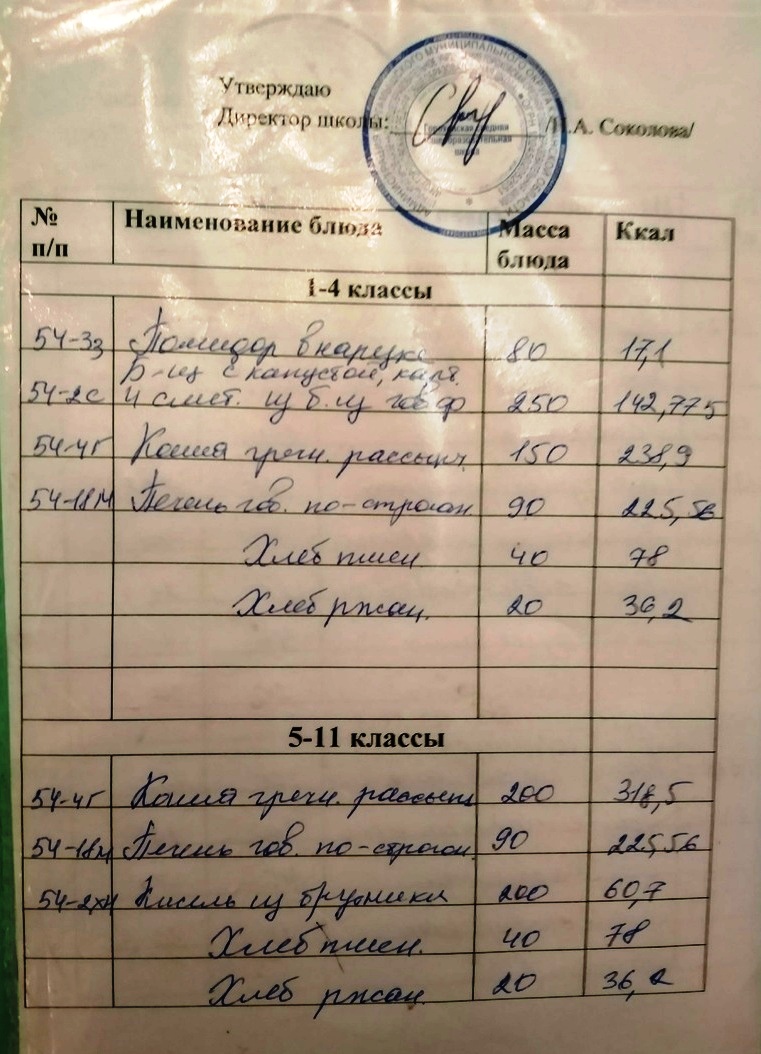 Утверждаю
Директор школы: /Н.А. Соколова/
№ п/п Наименование блюда Масса блюда Ккал
1-4 классы
54-3з Помидор в нарезке 80 17,1
Б-щ с капустой, карт.
54-2с и смет. 250 142,775
54-4г Каша гречн. рассыпч. 150 238,9
54-18м Печень гов. по-строган 90 225,56
Хлеб пшен 40 78
Хлеб ржан. 20 36,2
5-11 классы
54-4г Каша гречн. рассыпч 200 318,5
54-18м Печень гов. по-строган. 90 225,56
54-2хн Кисель из брусники 200 60,7
Хлеб пшен. 40 78
Хлеб ржан 20 36,2